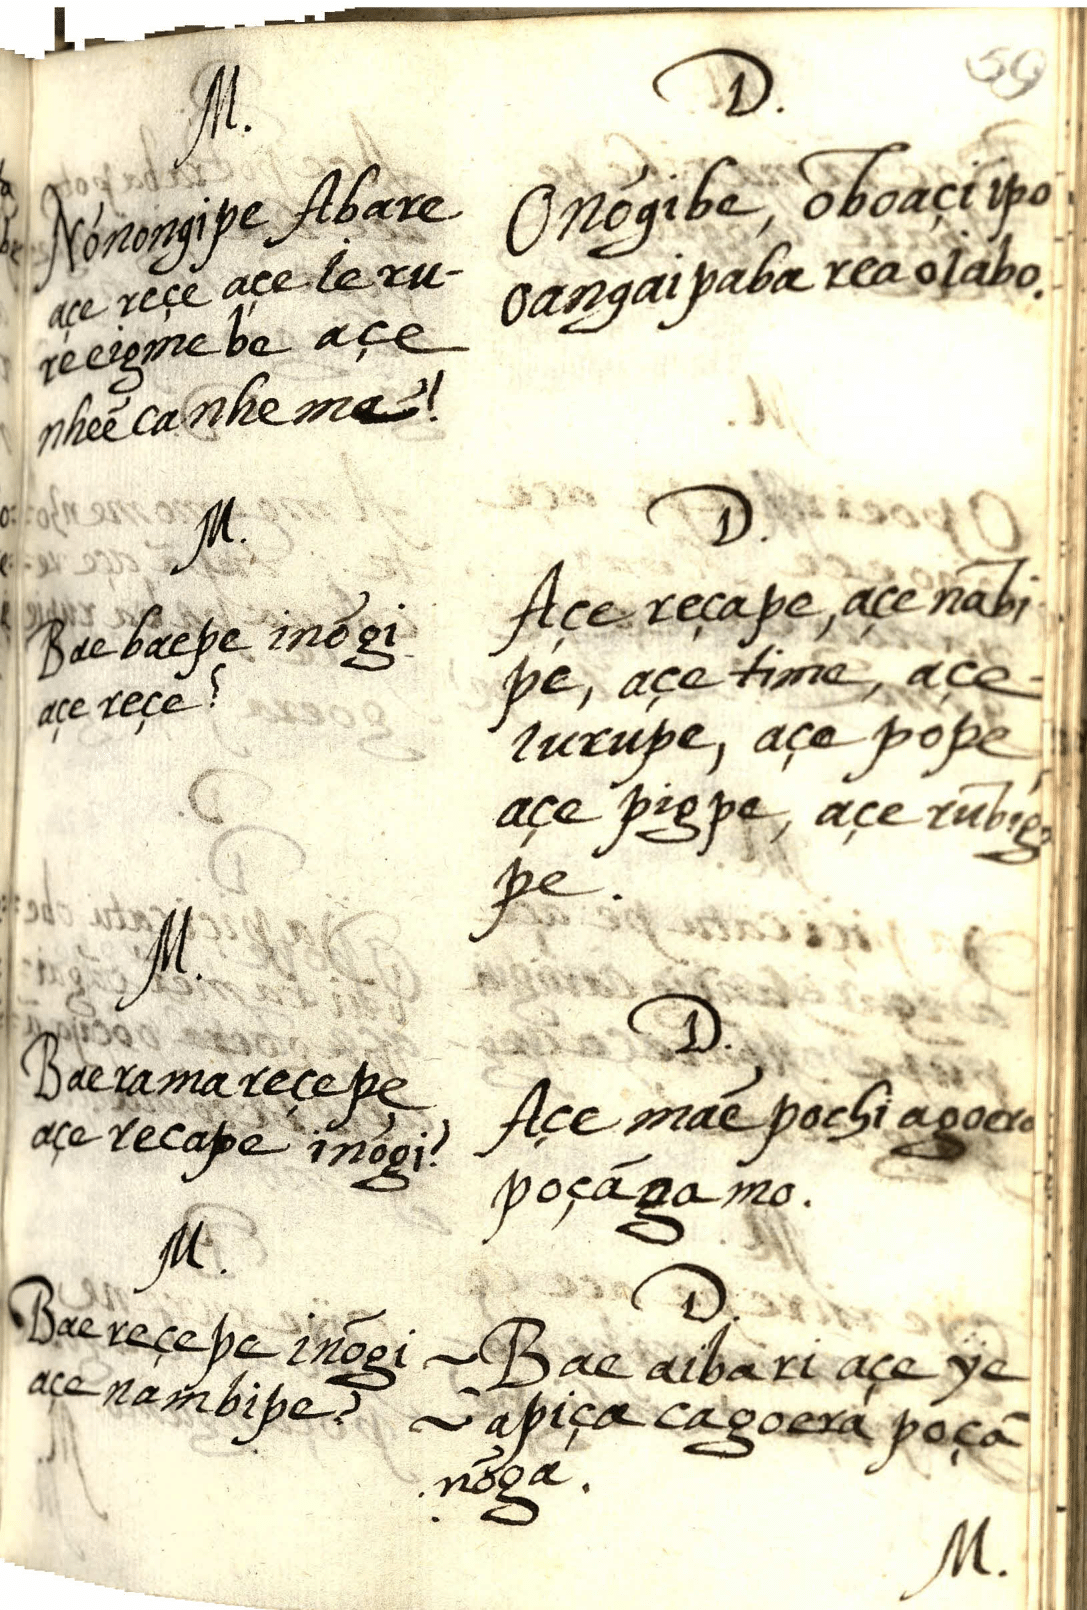 59
M.
Nónongipe Abare
açe reçe açe ie ru-
rèeigmebe açe
nheẽ canhemẽ!
D.
Onõgibe, oboaçi ipo
oangaipaba rea oiabo.
M.
Bae baepe inõgi
açe reçe?
D.
Açe reçape, açe nãbi
pe, açe time, açe-
iurupe, açe pope,
açe pigpe, açe rũbig
pe.
M.
Baeramareçepe
açe recape inõgi?
D.
Açe mãe pochi agoera
poçãngamo.
M.
Baereçepe inõgi
açe nambipe?
D.
Bae aibari açe ÿe
apiçacagoera poçã
nõga.
M.